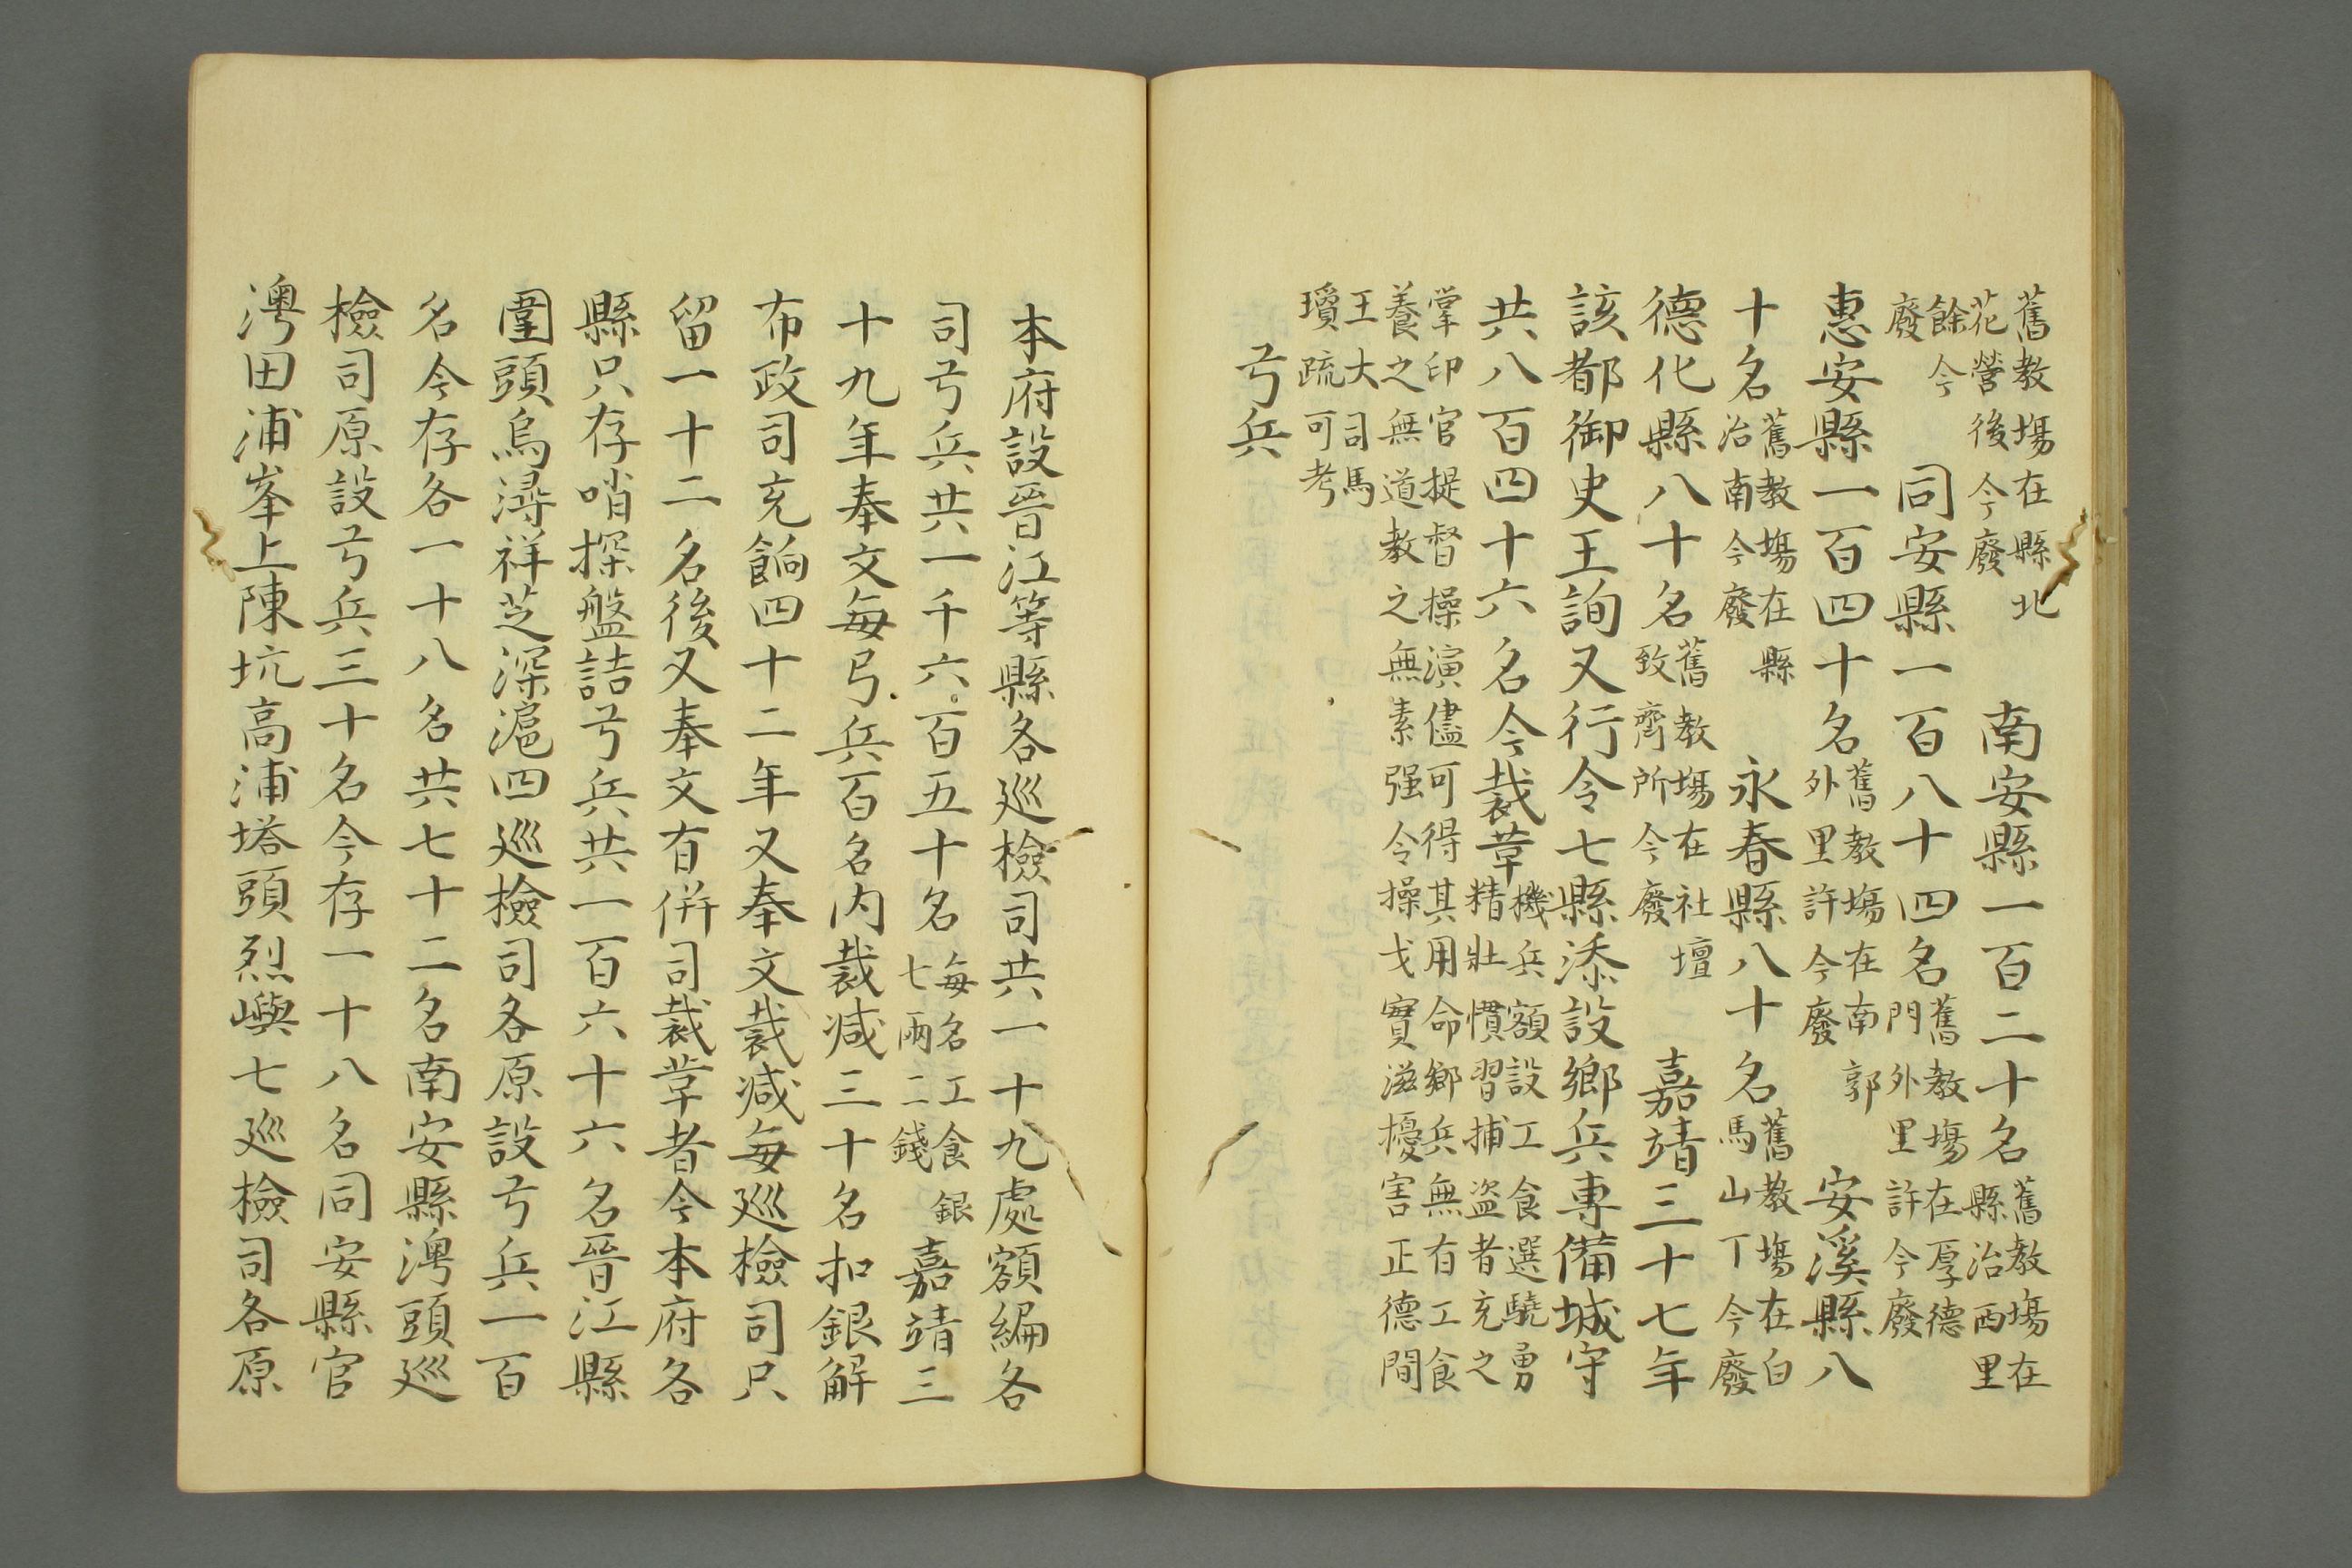 舊教場在縣北
花營後今廢
南安縣一百二十名
舊教場在
縣治西里
餘今
廢
同安縣一百八十四名
舊教場在厚德
門外里許今廢
惠安縣一百四十名
舊教場在南郭
外里許今廢
安溪縣八
十名
舊教場在縣
治南今廢
永春縣八十名
舊教場在白
馬山丁今廢
德化縣八十名
舊教場在社壇
致齊所今廢
嘉靖三十七年
該都御史王詢又行令七縣添設鄉兵專備城守
共八百四十六名今裁革
機兵額設工食選驍勇
精壯慣習捕盗者充之
掌印官提督操演儘可得其用命鄉兵無有工食
養之無道教之無素强令操戈實滋擾害正德間
王大司馬
瓊疏可考
弓兵
本府設晉江等縣各巡檢司共一十九處額編各
司弓兵共一千六百五十名
每名工食銀
七兩二錢
嘉靖三
十九年奉文每弓兵百名內裁減三十名扣銀解
布政司充餉四十二年又奉文裁減每巡檢司只
留一十二名後又奉文有併司裁革者今本府各
縣只存哨探盤詰弓兵共一百六十六名晉江縣
圍頭烏潯祥芝深滬四巡檢司各原設弓兵一百
名今存各一十八名共七十二名南安縣澳頭巡
檢司原設弓兵三十名今存一十八名同安縣官
澳田浦峯上陳坑高浦塔頭烈嶼七巡檢司各原